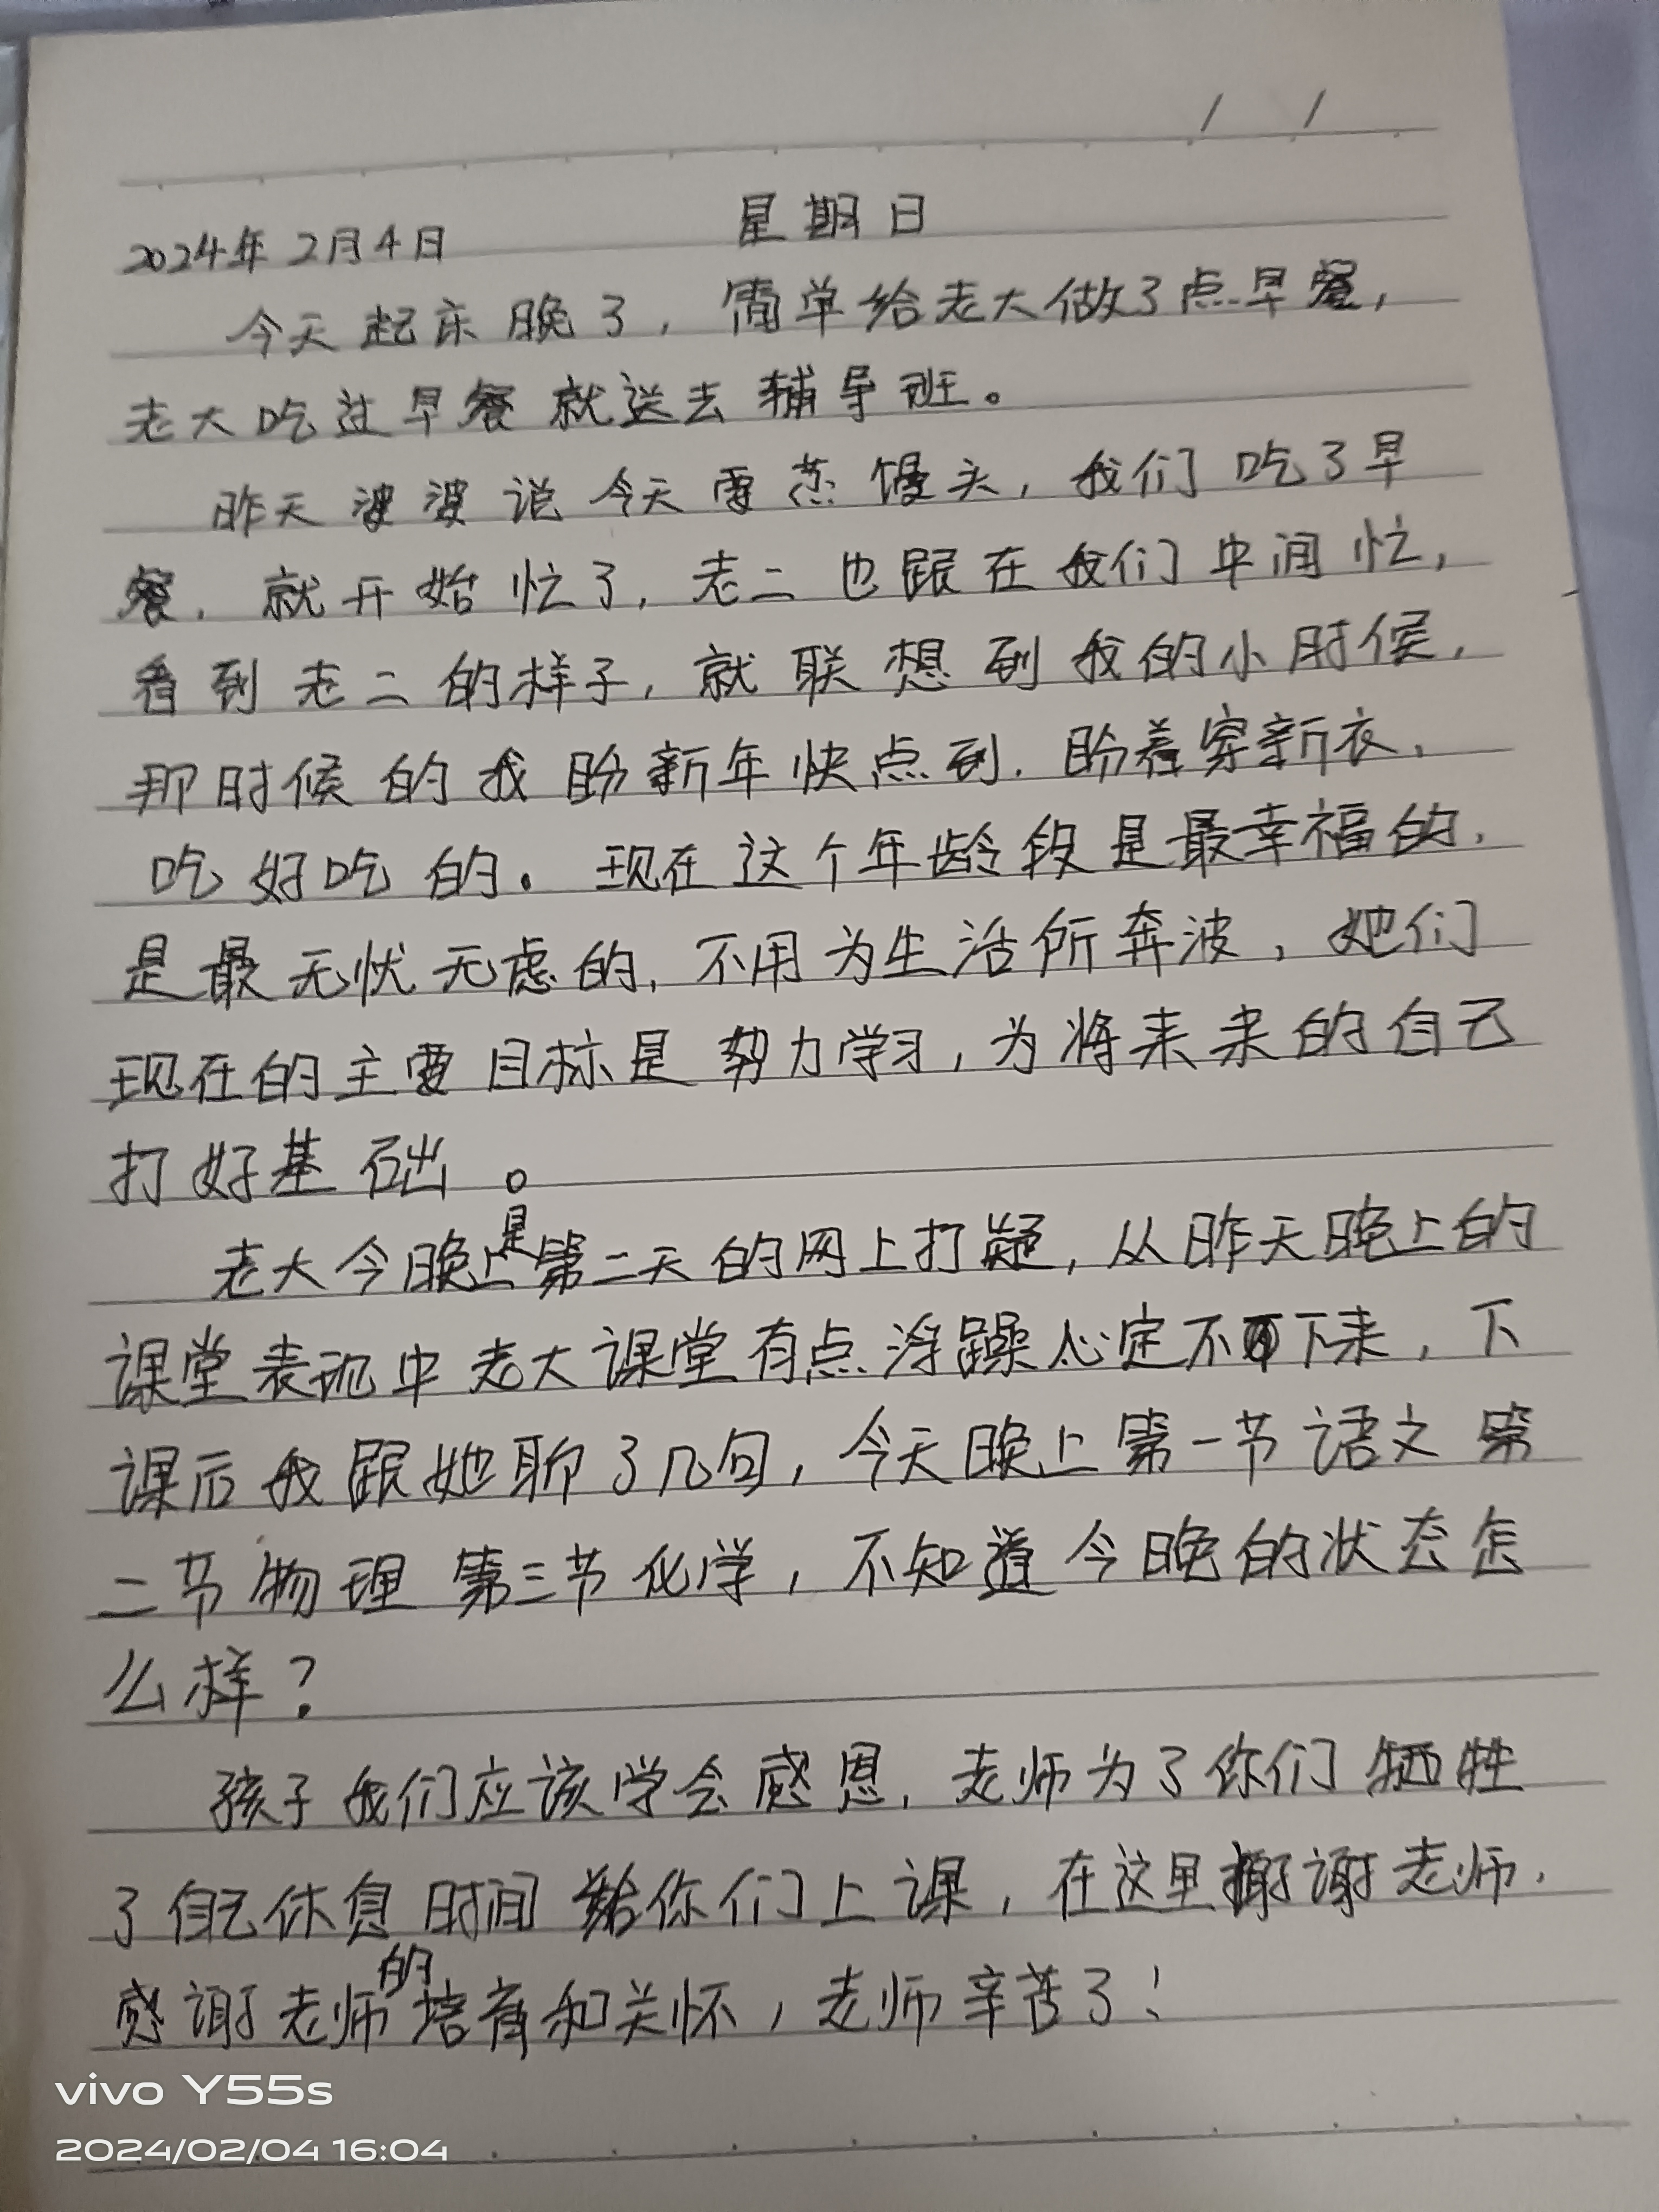 2024年2月4日 星期日
今天起床晚了，简单给老大做了点早餐，
老大吃过早餐就送去辅导班。
昨天婆婆说今天要蒸馒头，我们吃了早
餐，就开始忙了，老二也跟在我们中间忙，
看到老二的样子，就联想到我的小时候，
那时候的我盼新年快点到，盼着穿新衣，
吃好吃的。现在这个年龄段是最幸福的，
是最无忧无虑的，不用为生活所奔波，她们
现在的主要目标是努力学习，为将来来的自己
打好基础。
老大今晚上是第二天的网上打疑，从昨天晚上的
课堂表现中老大课堂有点浮躁心定不下来，下
课后我跟她聊了几句，今天晚上第一节语文第
二节物理第三节化学，不知道今晚的状态怎
么样？
孩子我们应该学会感恩，老师为了你们牺牲
了自己休息时间给你们上课，在这里谢谢老师，
感谢老师的培育和关怀，老师辛苦了！
vivo Y55s
2024/02/04 16:04